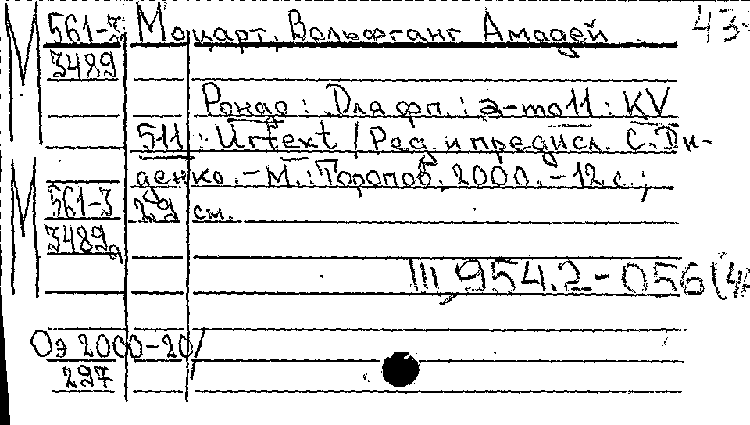 М 561-3 Моцарт, Вольфганг Амадей 43-
3489
Рондо: Для фп.: a-moll: KV
511: Urtext / Ред. и предисл. С. Ди-
денко. - М.: Торопов, 2000. - 12 с.;
М 561-3 29 см.
3489а
III, 954.2-056(4А
Оэ 2000-20/
297